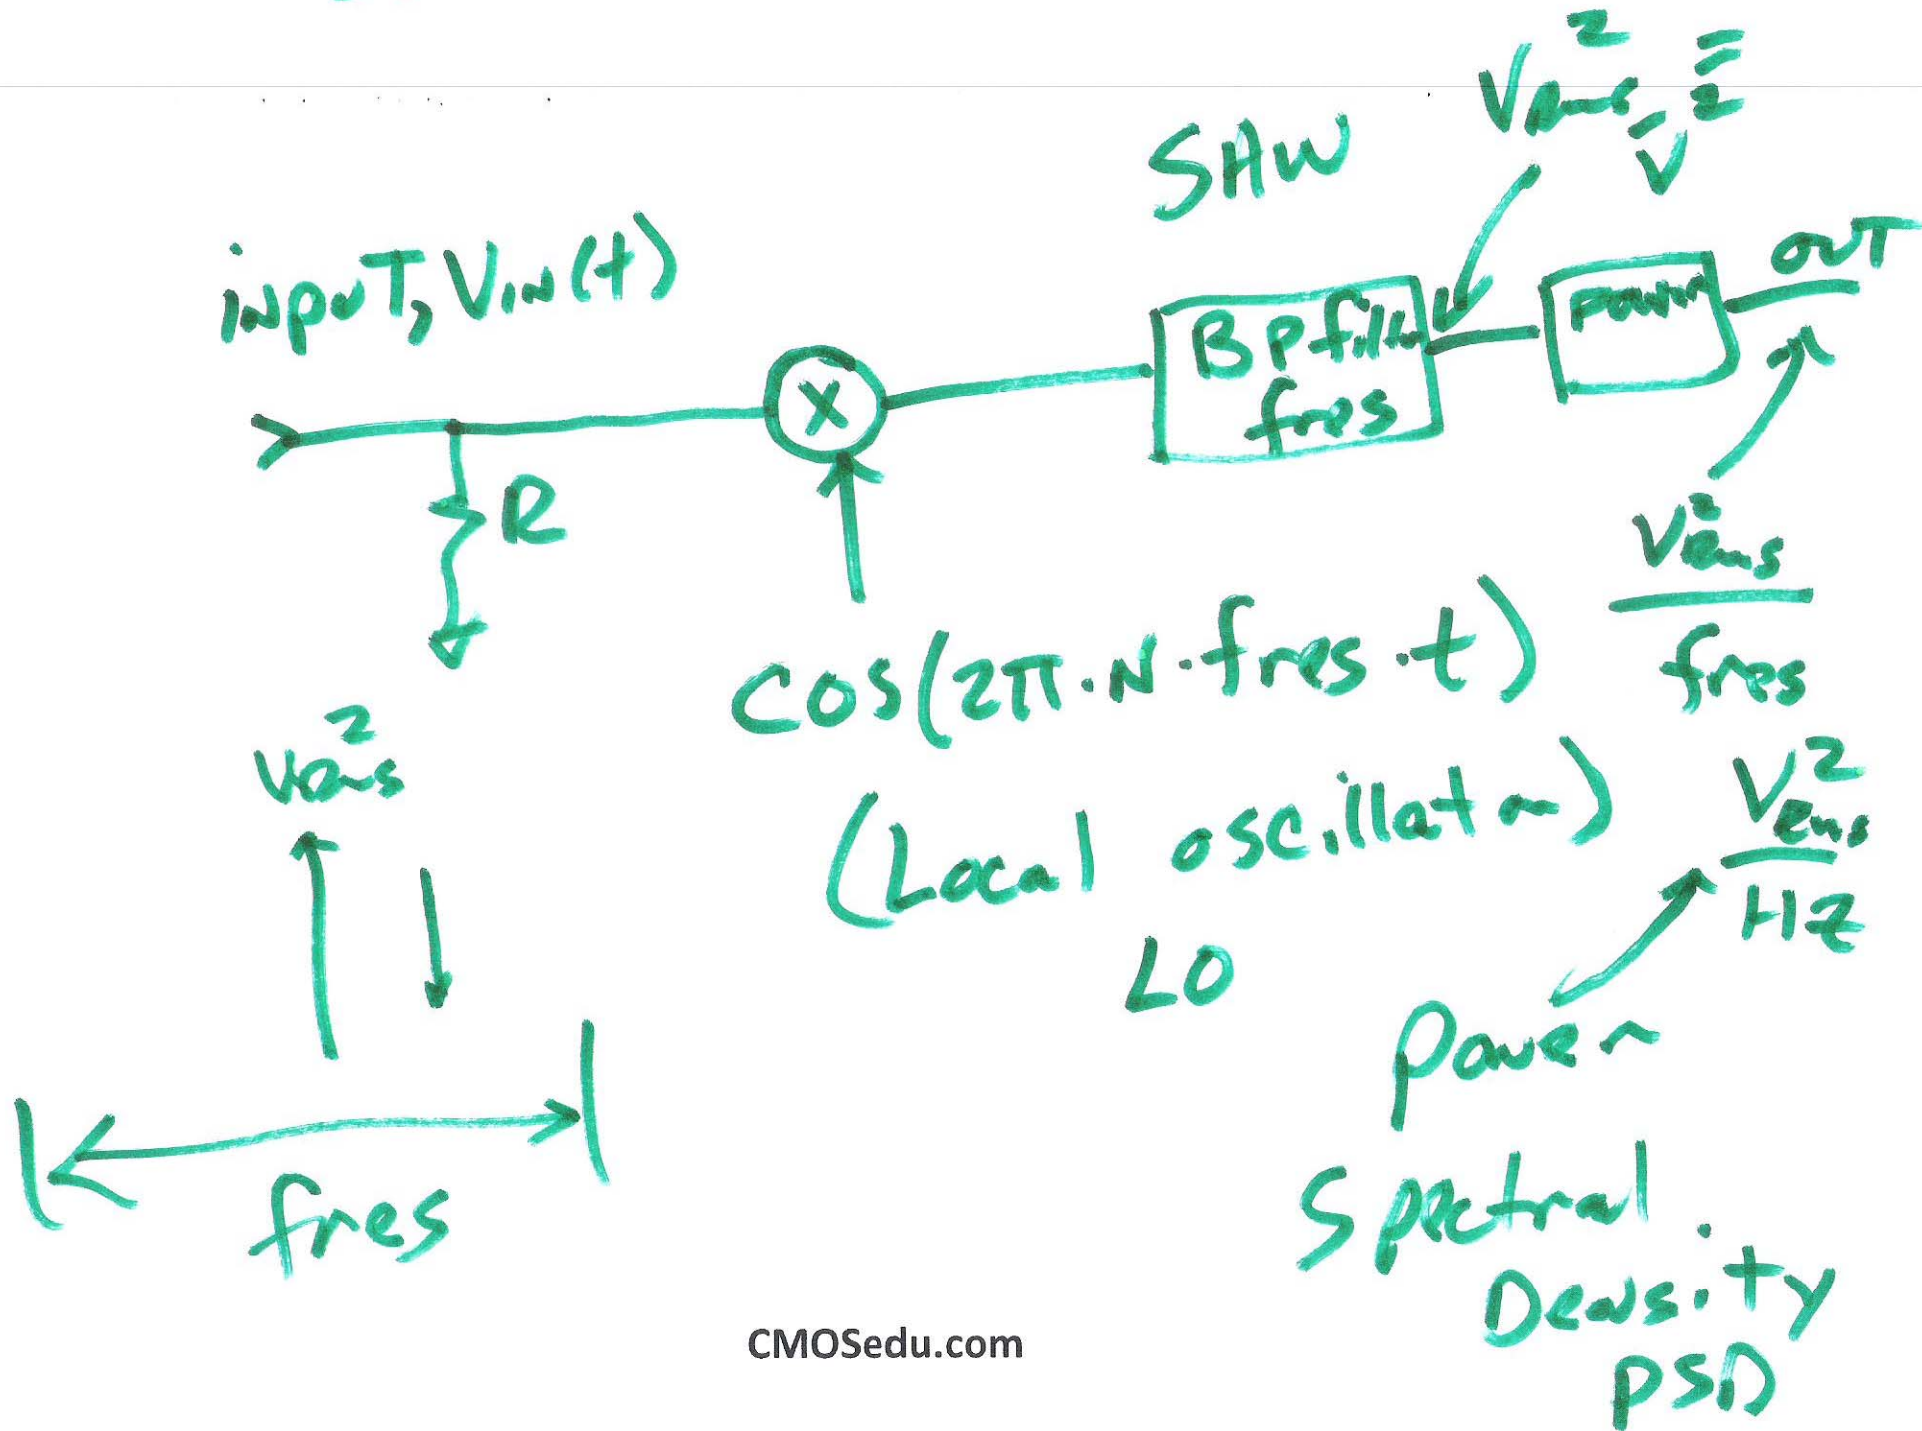 V²RMS, V̄²
SAW
INPUT, VIN(t)
OUT
X
BP filter
fres
Power
R
V²RMS
fres
COS(2π·N·fres·t)
(Local oscillator)
LO
V²RMS
V²RMS
Hz
Power
Spectral
Density
PSD
fres
CMOSedu.com